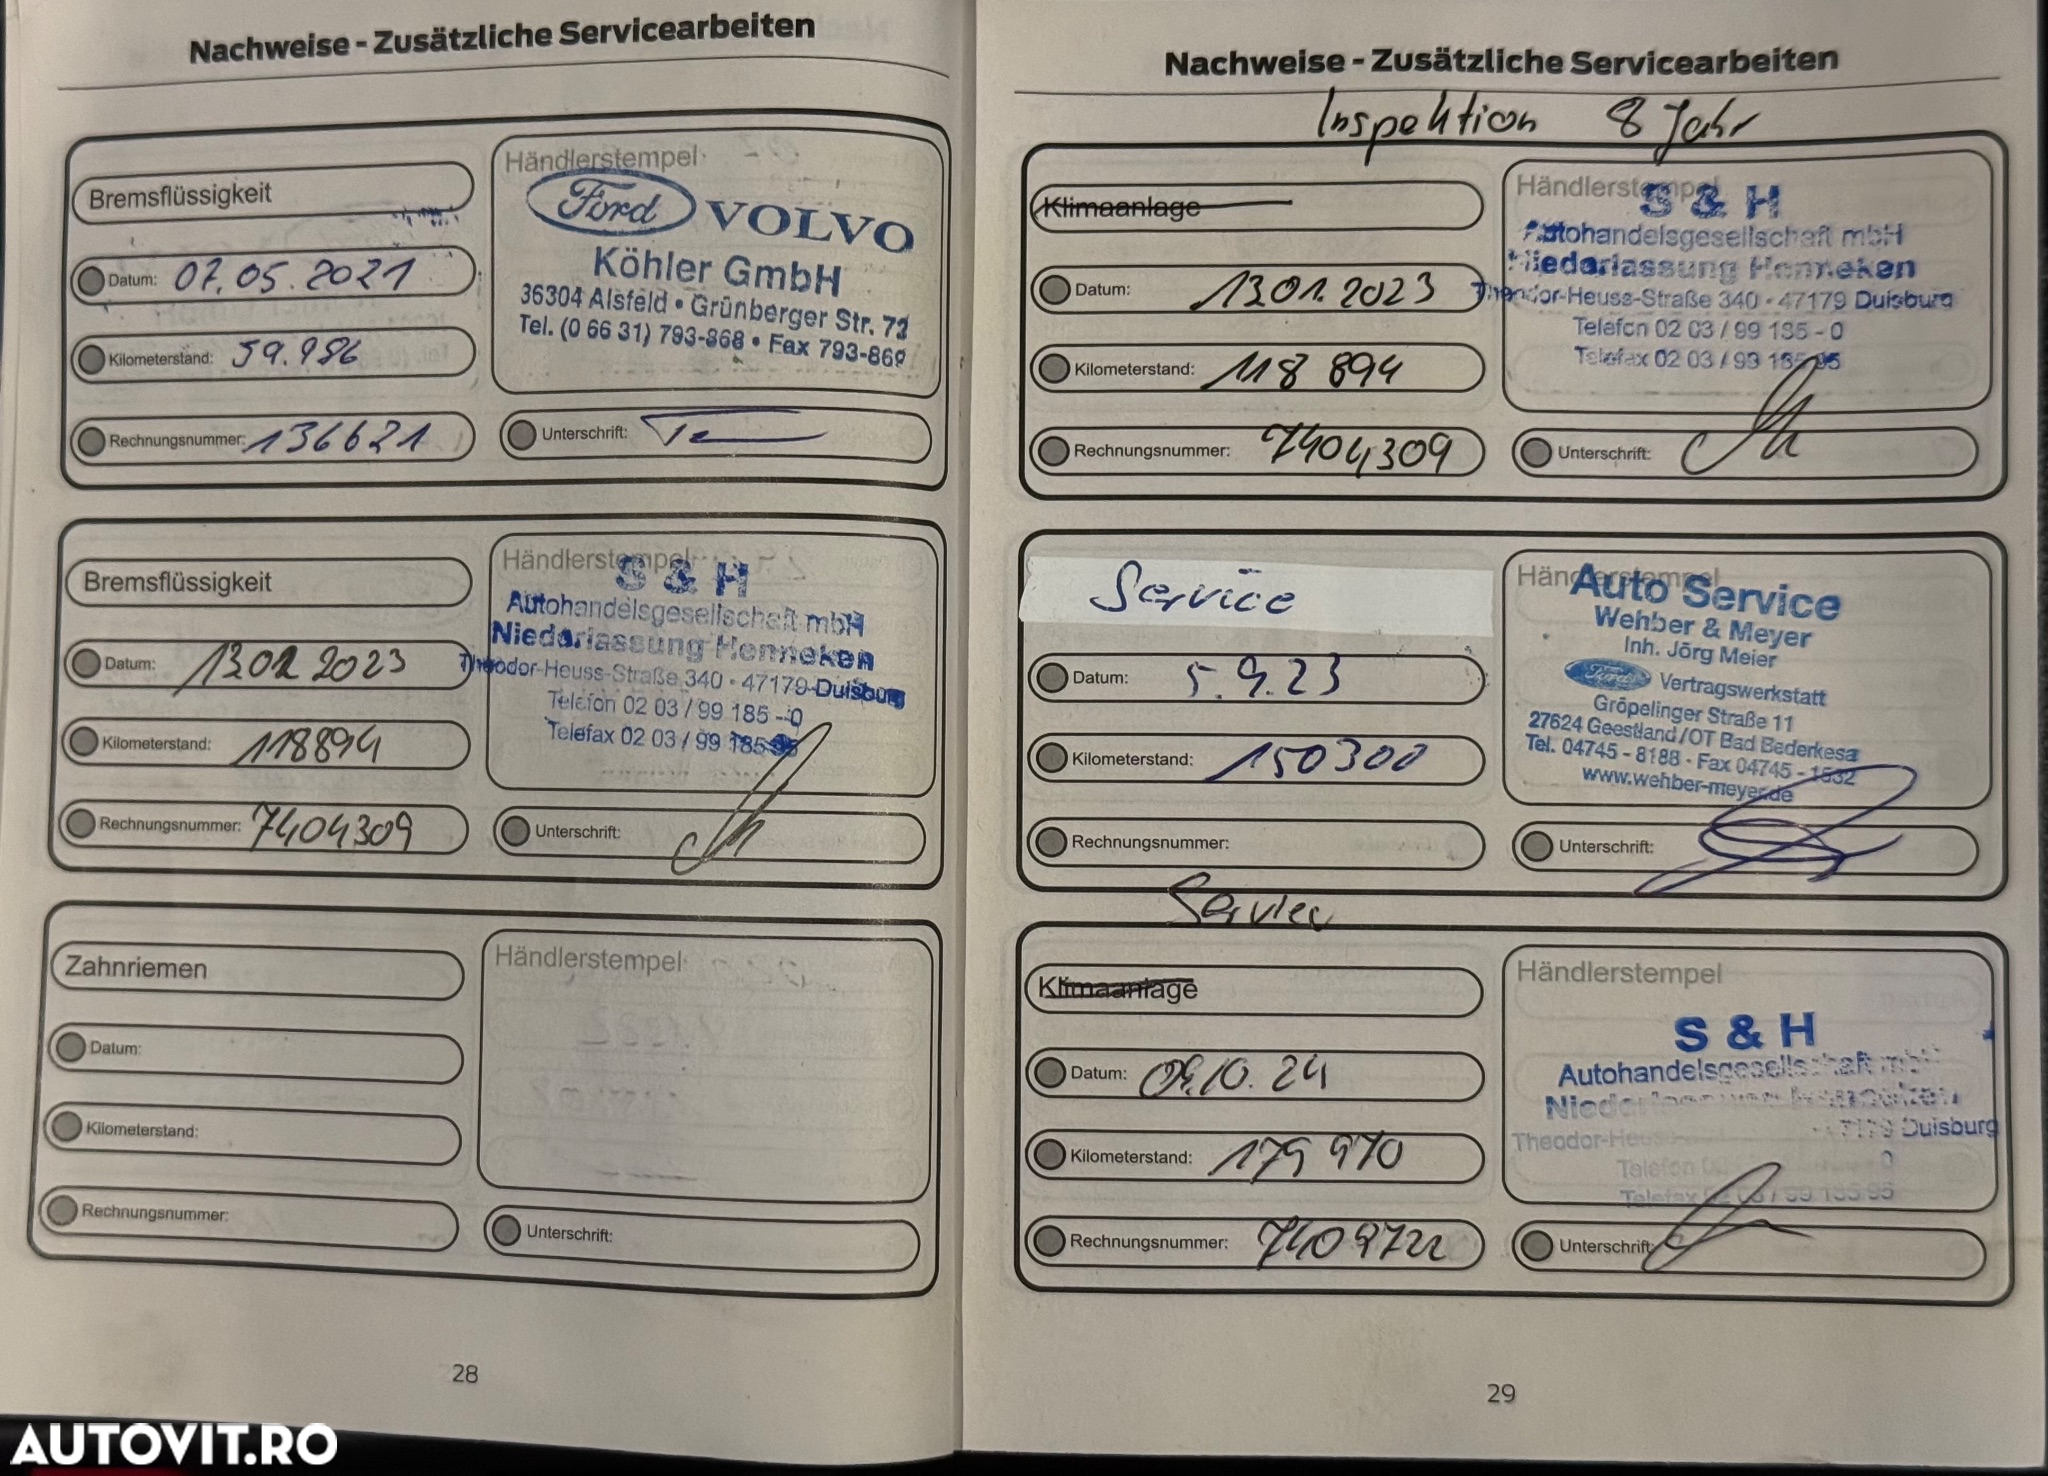 Nachweise - Zusätzliche Servicearbeiten
Bremsflüssigkeit
Datum: 07.05.2021
Kilometerstand: 59.986
Rechnungsnummer: 136621
Händlerstempel
Ford VOLVO
Köhler GmbH
36304 Alsfeld • Grünberger Str. 72
Tel. (0 66 31) 793-868 • Fax 793-869
Unterschrift:
Bremsflüssigkeit
Datum: 13.01.2023
Kilometerstand: 118894
Rechnungsnummer: 7404309
Händlerstempel
S & H
Autohandelsgesellschaft mbH
Niederlassung Henneken
Theodor-Heuss-Straße 340 - 47179 Duisburg
Telefon 02 03 / 99 185 - 0
Telefax 02 03 / 99 185 95
Unterschrift:
Zahnriemen
Datum:
Kilometerstand:
Rechnungsnummer:
Händlerstempel
Unterschrift:
28
Nachweise - Zusätzliche Servicearbeiten
Inspektion 8 Jahr
Klimaanlage
Datum: 13.01.2023
Kilometerstand: 118 894
Rechnungsnummer: 7404309
Händlerstempel
S & H
Autohandelsgesellschaft mbH
Niederlassung Henneken
Theodor-Heuss-Straße 340 - 47179 Duisburg
Telefon 02 03 / 99 185 - 0
Telefax 02 03 / 99 185 95
Unterschrift:
Service
Datum: 5.9.23
Kilometerstand: 150300
Rechnungsnummer:
Händlerstempel
Auto Service
Wehber & Meyer
Inh. Jörg Meier
Ford Vertragswerkstatt
Gröpelinger Straße 11
27624 Geestland/OT Bad Bederkesa
Tel. 04745 - 8188 - Fax 04745 - 1532
www.wehber-meyer.de
Unterschrift:
Service
Klimaanlage
Datum: 09.10.24
Kilometerstand: 179 970
Rechnungsnummer: 7409722
Händlerstempel
S & H
Autohandelsgesellschaft mbH
Niederlassung Henneken
Theodor-Heuss 47179 Duisburg
Telefon 0
Telefax 02 03 / 99 185 95
Unterschrift:
29
AUTOVIT.RO